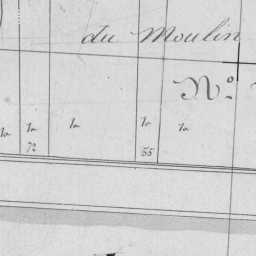 du Moulin
No.
1a 1a 1a 1a 1a
72 55